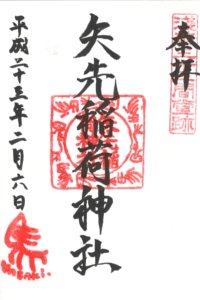 奉拝
矢先稲荷神社
平成二十三年二月六日